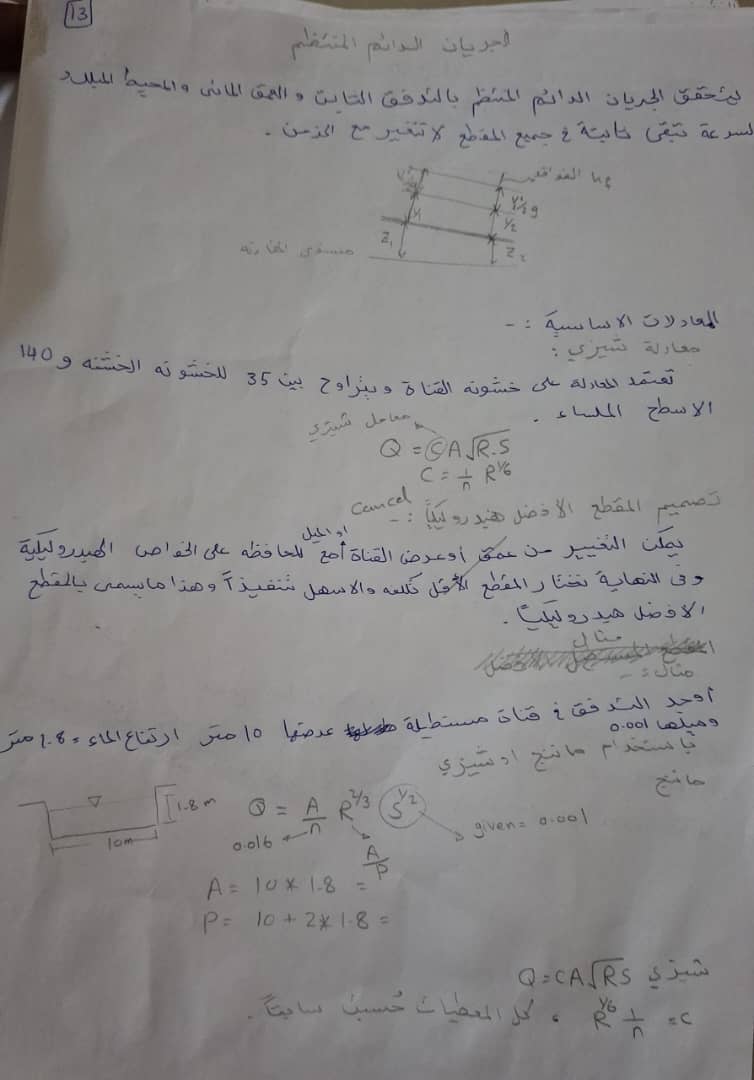 13
الجريان الدائم المنتظم
يتحقق الجريان الدائم المنتظم بالتدفق الثابت والعمق المائي والمحيط المبلل و
السرعة تبقى ثابتة في جميع المقطع لا تتغير مع الزمن .
V²/2g hf الفواقد
V²/2g
Y₁ Y₂
Z₁ Z₂
مستوى المقارنة
المعادلات الاساسية : -
معادلة شيزي :
تعتمد المعادلة على خشونه القناة ويتراوح بين 35 للخشونه الخشنه و 140
الاسطح الملساء .
معامل شيزي
Q = C A √R.S
C = 1/n R^1/6
تصميم المقطع الافضل هيدروليكياً : - Cancel
او الميل
يمكن التغيير من عمق أو عرض القناة مع المحافظه على الخواص الهيدروليكية
وفى النهاية نختار المقطع الأقل تكلفه والاسهل تنفيذاً وهذا مايسمى بالمقطع
الافضل هيدروليكياً .
مثال
مثال : -
أوجد التدفق في قناة مستطيلة عرضها 10 متر ارتفاع الماء = 1.8 متر
وميلها 0.001
باستخدام ماننج او شيزي
ماننج
1.8 m
10m
Q = A/n R^2/3 S^1/2
given = 0.001
0.016
A/P
A = 10 * 1.8 =
P = 10 + 2 * 1.8 =
شيزي Q = CA √RS
C = 1/n R^1/6 ، كل المعطيات حُسبت سابقاً .